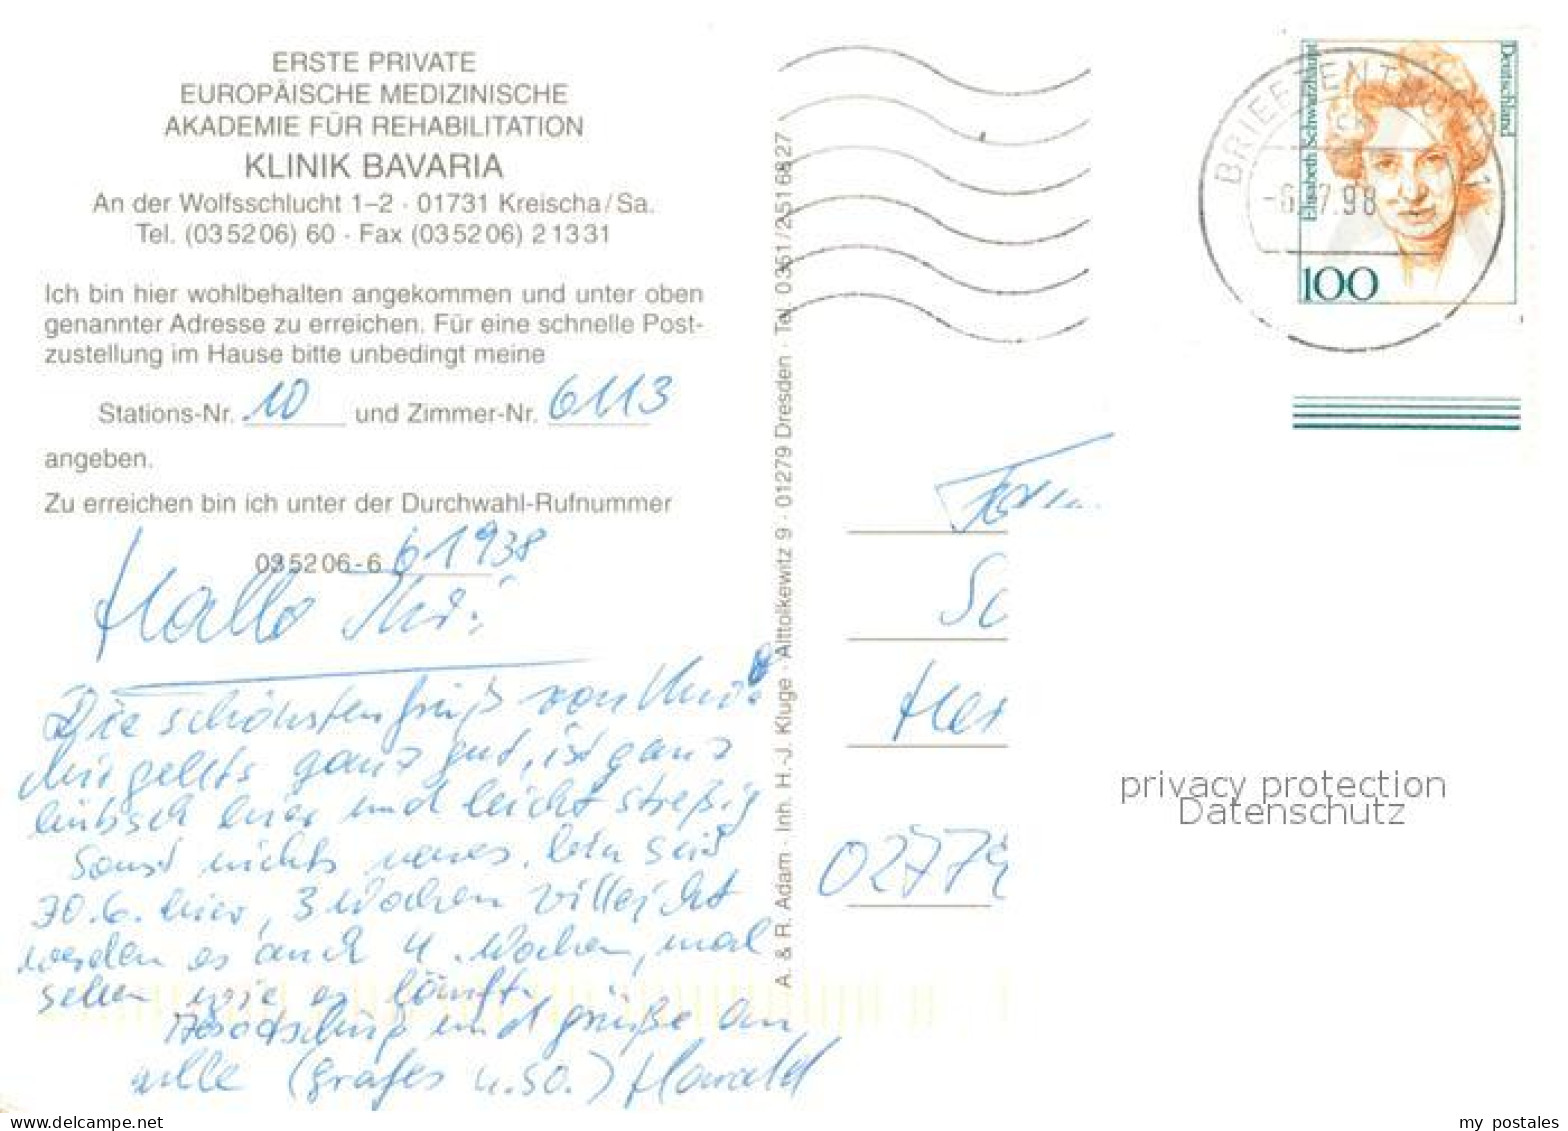 ERSTE PRIVATE
EUROPÄISCHE MEDIZINISCHE
AKADEMIE FÜR REHABILITATION
KLINIK BAVARIA
An der Wolfsschlucht 1–2 · 01731 Kreischa/Sa.
Tel. (035206) 60 · Fax (035206) 21331
Ich bin hier wohlbehalten angekommen und unter oben
genannter Adresse zu erreichen. Für eine schnelle Post-
zustellung im Hause bitte unbedingt meine
Stations-Nr. 10 und Zimmer-Nr. 6113
angeben.
Zu erreichen bin ich unter der Durchwahl-Rufnummer
035206-6 61938
Hallo
Die schönsten grüß von
Mir gehts ganz gut, ist ganz
hübsch hier und leicht streßig
Sonst nichts neues, bin seid
30.6. hier, 3 Wochen villeicht
werden es auch 4 Wochen, mal
sehen wie es läuft.
und grüße an
alle (grafes u.so.) Harald
A. & R. Adam · Inh. H.-J. Kluge · Alttolkewitz 9 · 01279 Dresden · Tel. 0351/2516827
Deutschland
Elisabeth Schwarzhaupt
100
BRIEFZENTRUM
-6.-7.98
Fam.
Her
0277
privacy protection
Datenschutz
my postales